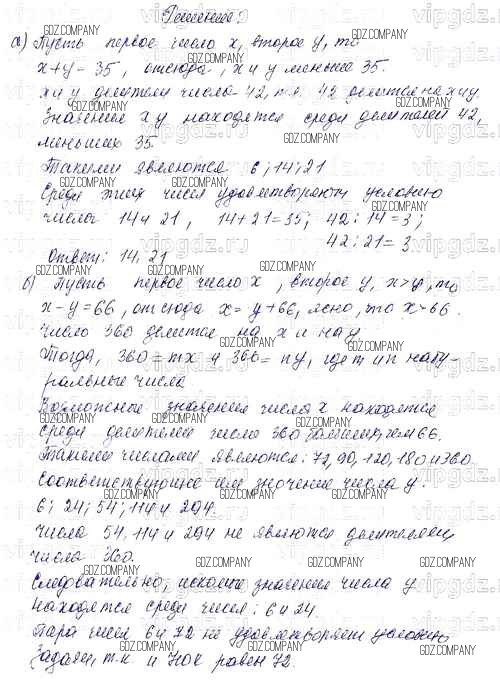 Решение:
а) Пусть первое число x, второе y, то
x+y=35, отсюда, x и y меньше 35.
x и y делители числа 42, т.к. 42 делится на x и y.
Значение x y находятся среди делителей 42,
меньших 35.
Такими являются 6; 14; 21
Среди этих чисел удовлетворяют условию
числа 14 и 21, 14+21=35; 42:14=3;
42:21=3
Ответ: 14, 21
б) Пусть первое число x, второе y, x>y, то
x-y=66, отсюда x=y+66, ясно, что x>66.
Число 360 делится на x и на y
Тогда, 360=mx и 366=ny, где m и n нату-
ральные числа
Возможное значение числа x находятся
среди делителей число 360 чем 66.
Такими числами являются: 72, 90, 120, 180 и 360
Соответствующие им значение числа y:
6; 24; 54; 114 и 294.
Числа 54, 114 и 294 не являются делителями
числа 360.
Следовательно, искомые значения числа y
находятся среди чисел: 6 и 24.
Пара чисел 6 и 72 не удовлетворяет условию
задачи, т.к. и НОК равен 72.
GDZ.COMPANY
vipgdz.ru